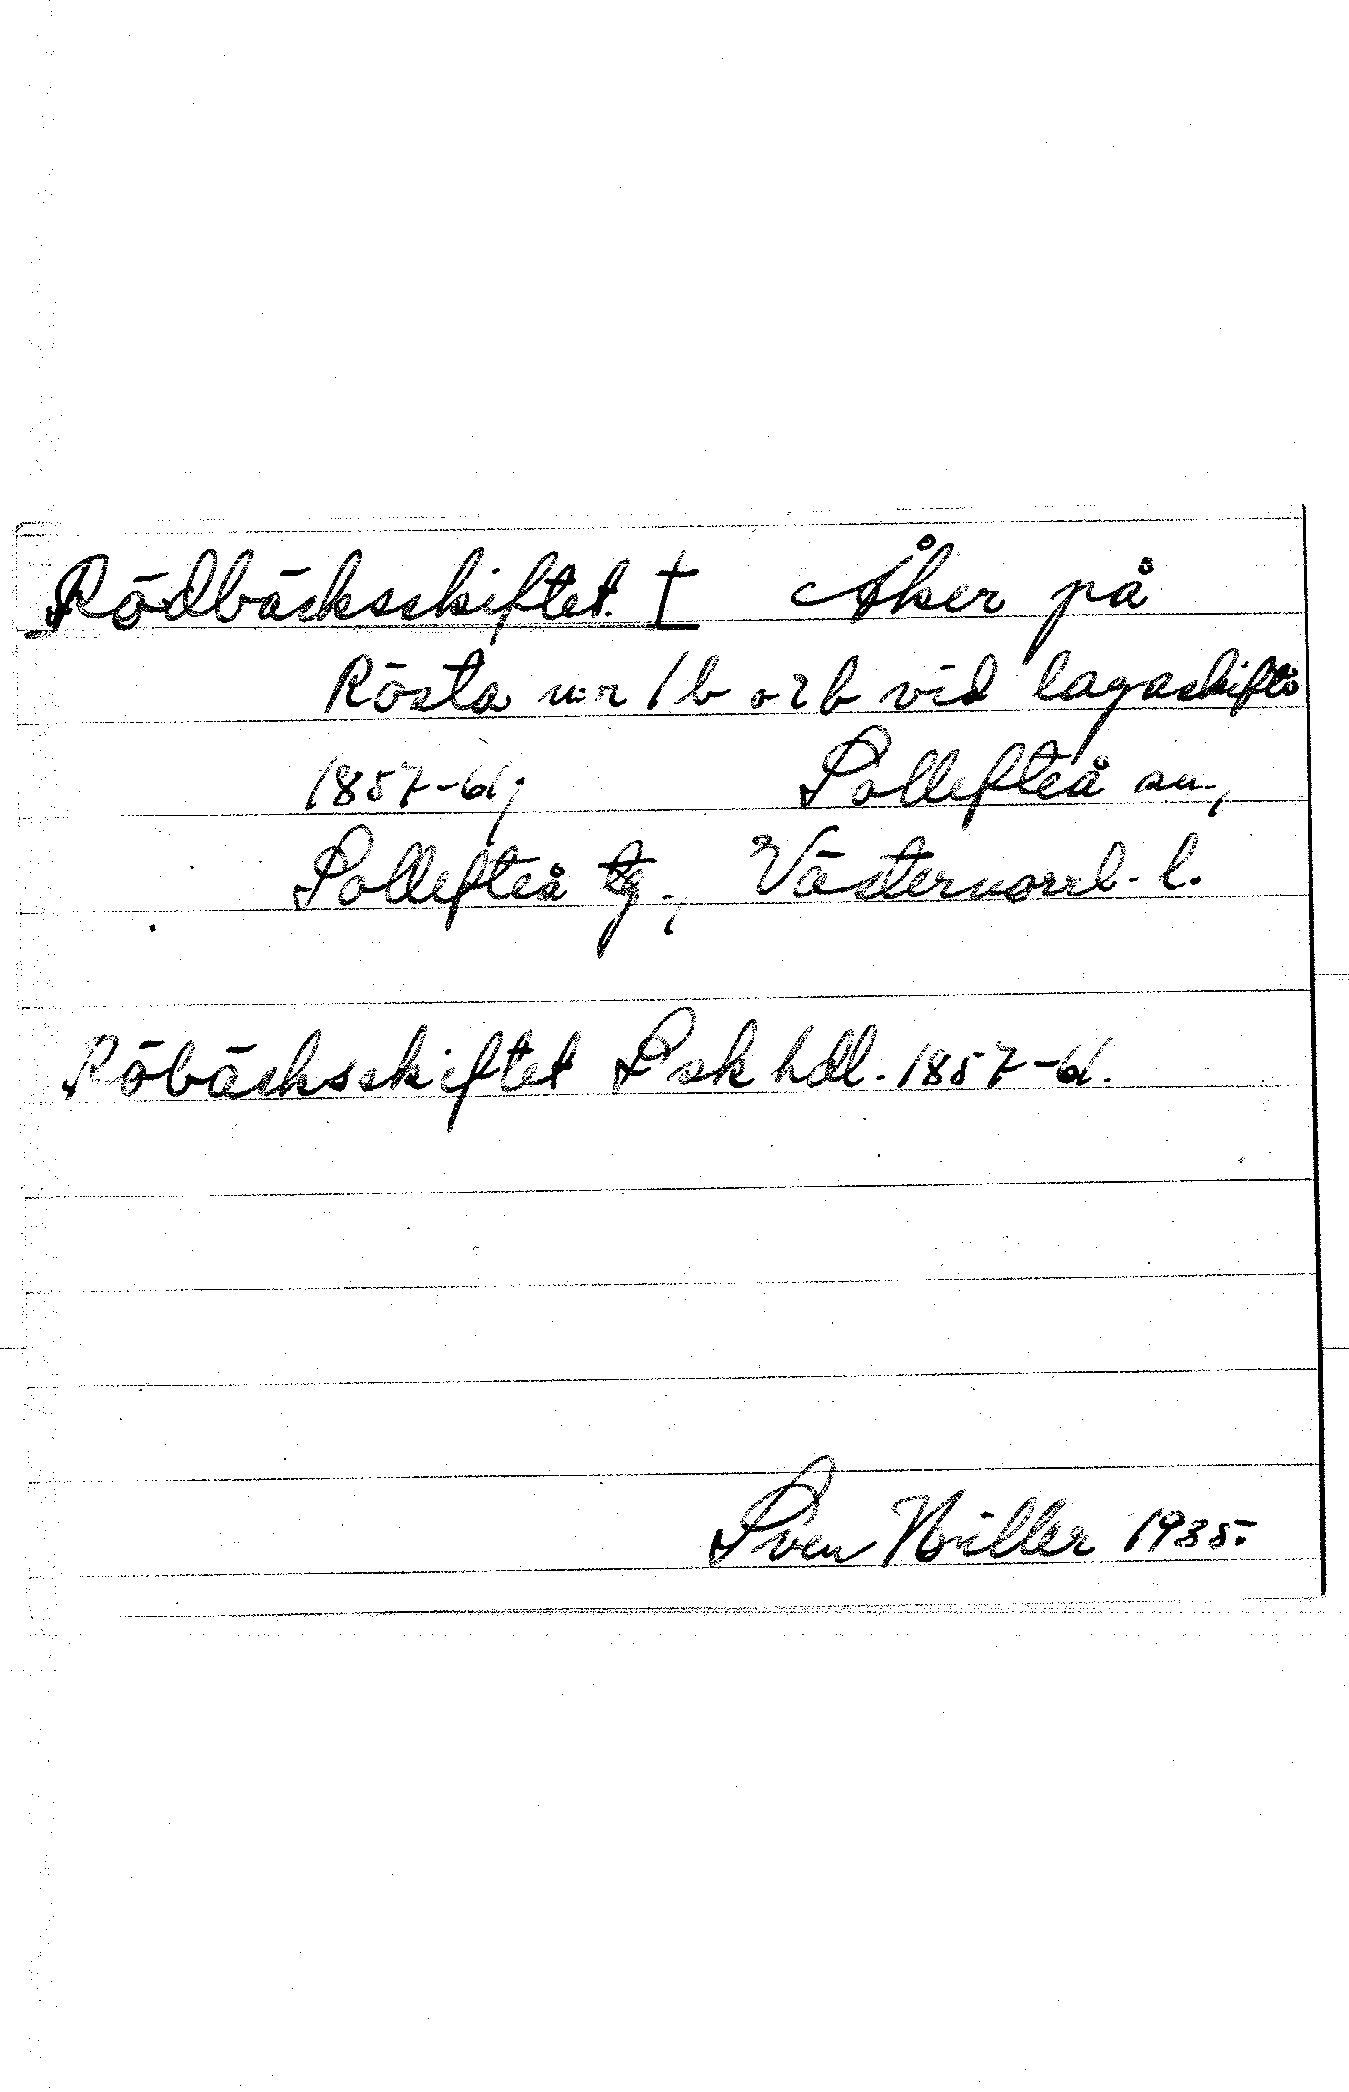 Rödbäcksskiftet. † Åker på
Rösta n:r 1b o 2b vid lagaskifte
1857-61; Sollefteå sn.,
Sollefteå tg., Västernorrl. l.
Röbäcksskiftet Lsk hdl. 1857-61.
Sven Hiller 1935.